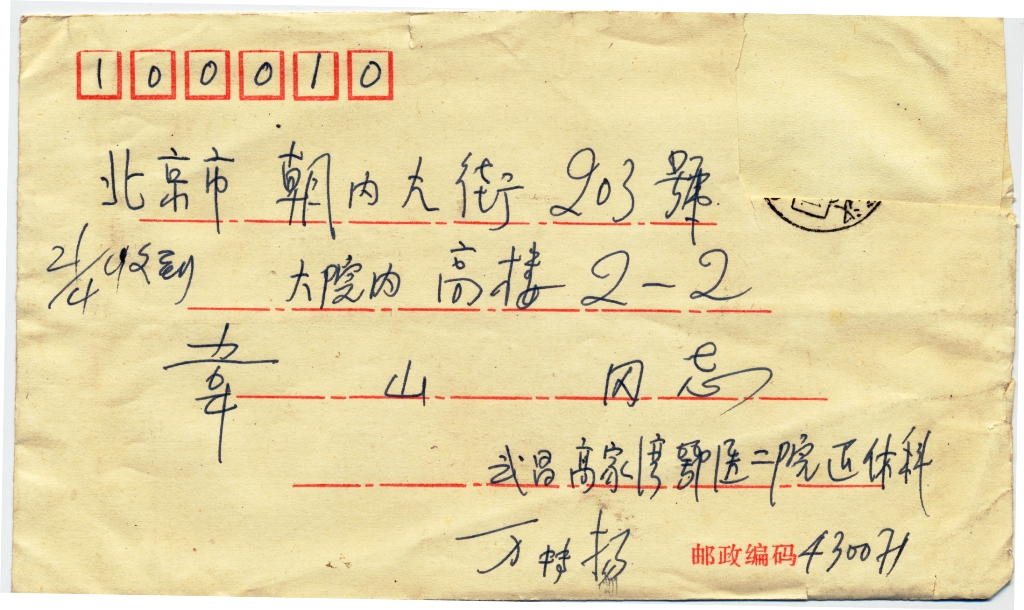 100010
北京市 朝内大街 203號
21/4 收到 大院内 高楼 2-2
山 同志
武昌高家湾鄂医二院 科
万 扬 邮政编码 430071